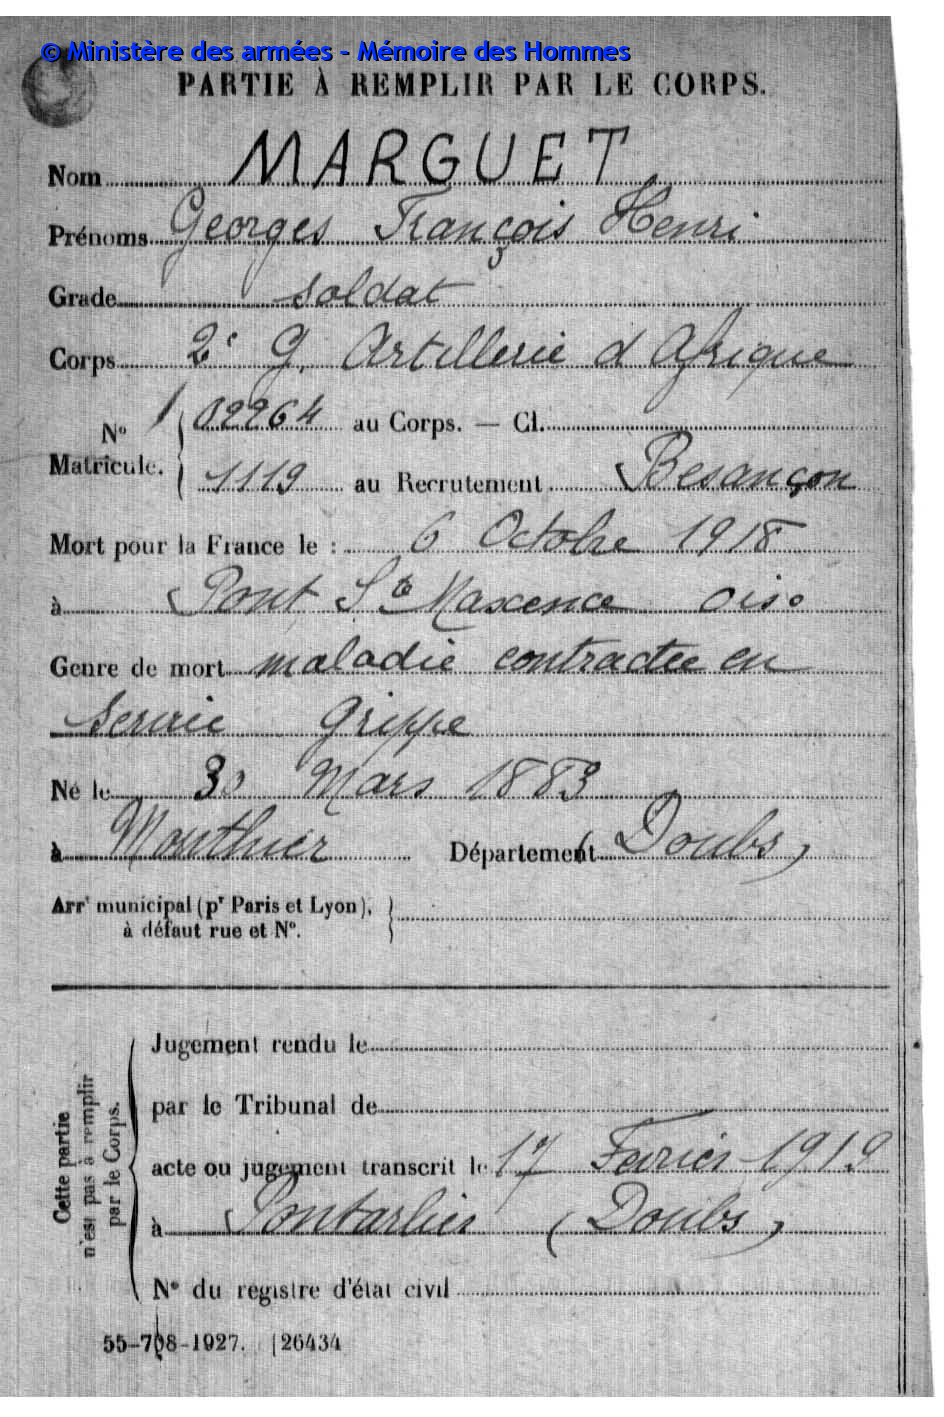 © Ministère des armées - Mémoire des Hommes
PARTIE À REMPLIR PAR LE CORPS.
Nom MARGUET
Prénoms Georges François Henri
Grade soldat
Corps 2e G. Artillerie d Afrique
No Matricule. { 02264 au Corps. — Cl.
1119 au Recrutement Besançon
Mort pour la France le : 6 Octobre 1918
à Pont Ste Maxence Oise
Genre de mort maladie contractée en
service Grippe
Né le 30 Mars 1883
à Mouthier Département (Doubs)
Arrt municipal (pr Paris et Lyon),
à défaut rue et No.
Cette partie
n'est pas à remplir
par le Corps.
Jugement rendu le
par le Tribunal de
acte ou jugement transcrit le 17 Fevrier 1919
à Pontarlier (Doubs)
No du registre d'état civil
55-708-1927. [26434